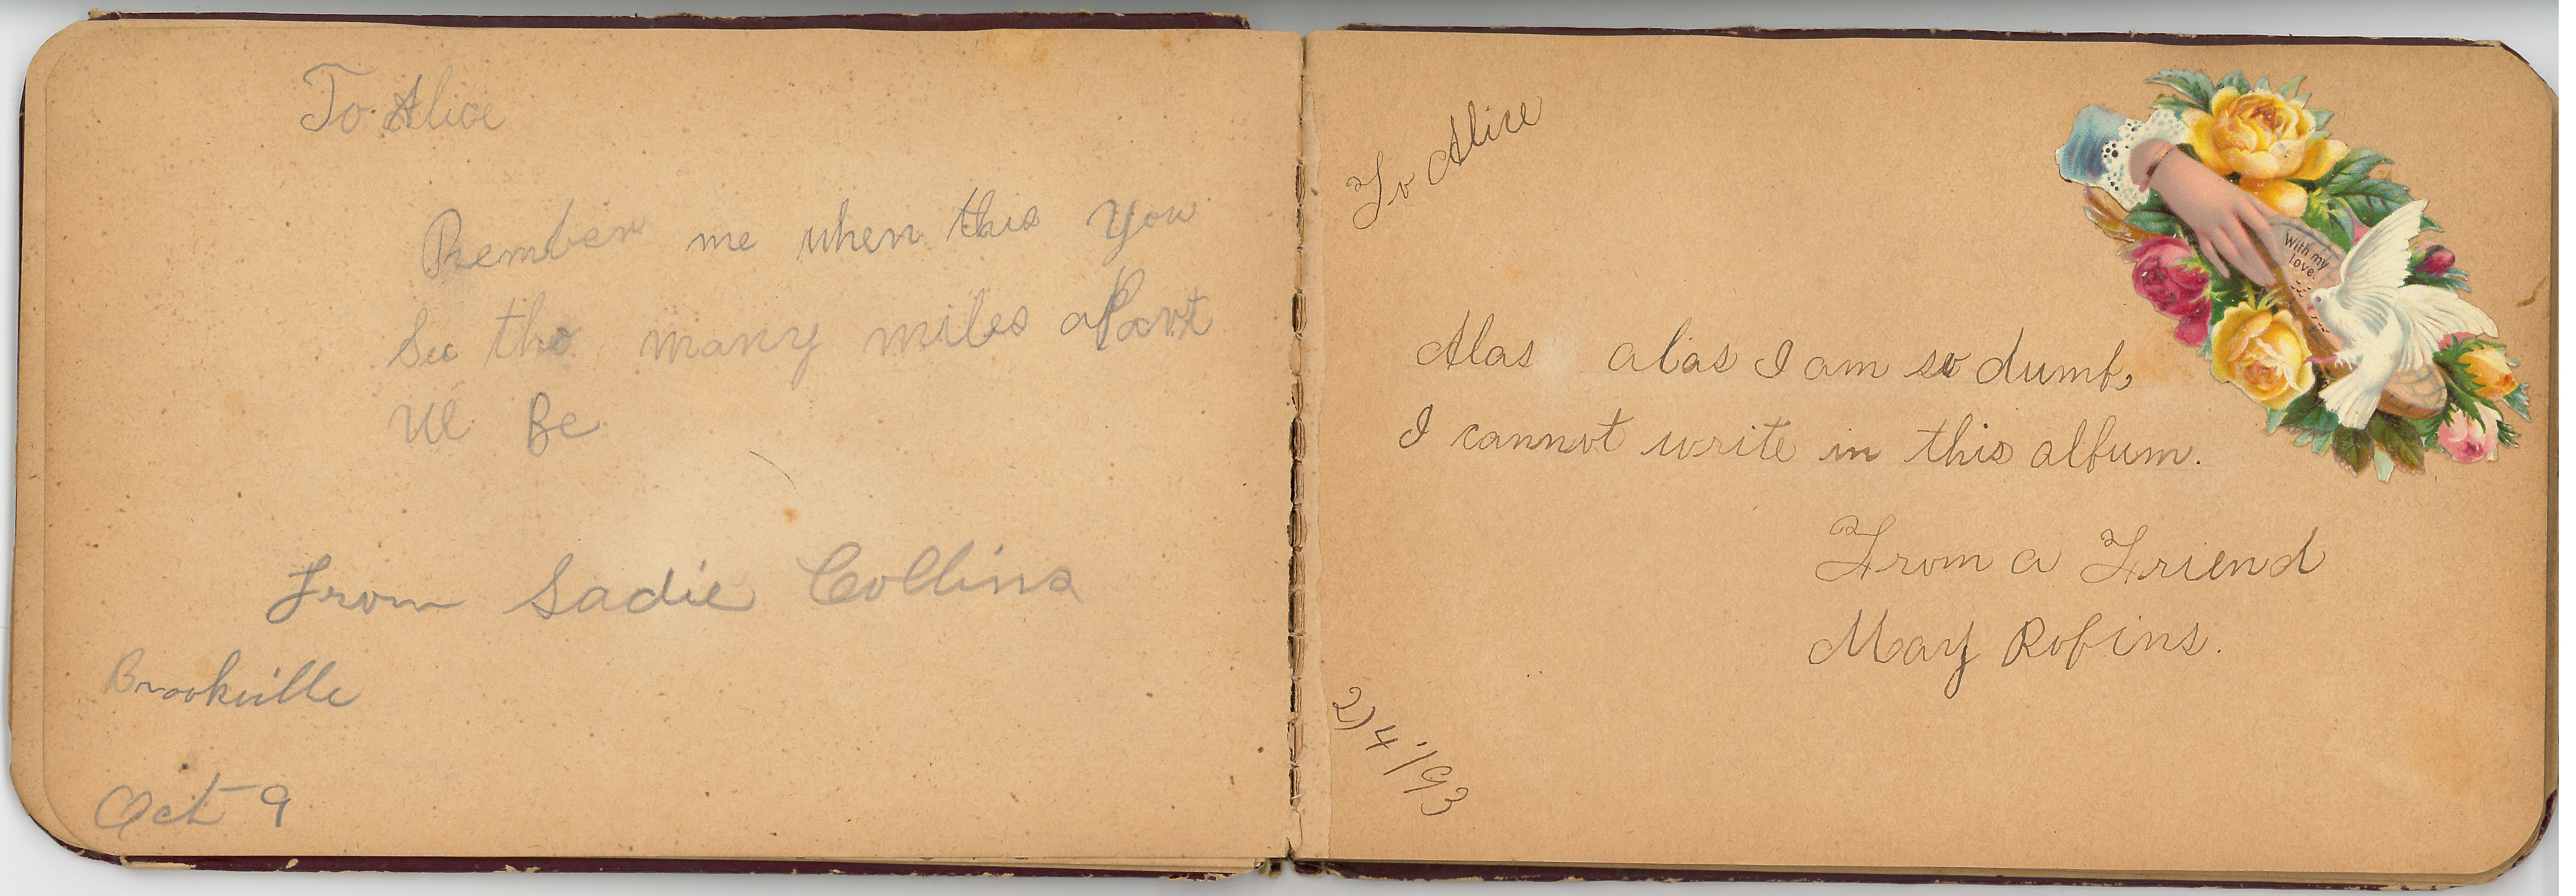 To Alice
Rember me when this you
See tho many miles aPart
We Be
From Sadie Collins
Brookville
Oct 9
To Alice
With my
love.
Alas alas I am so dumb,
I cannot write in this album.
From a Friend
May Robins.
2/4/93